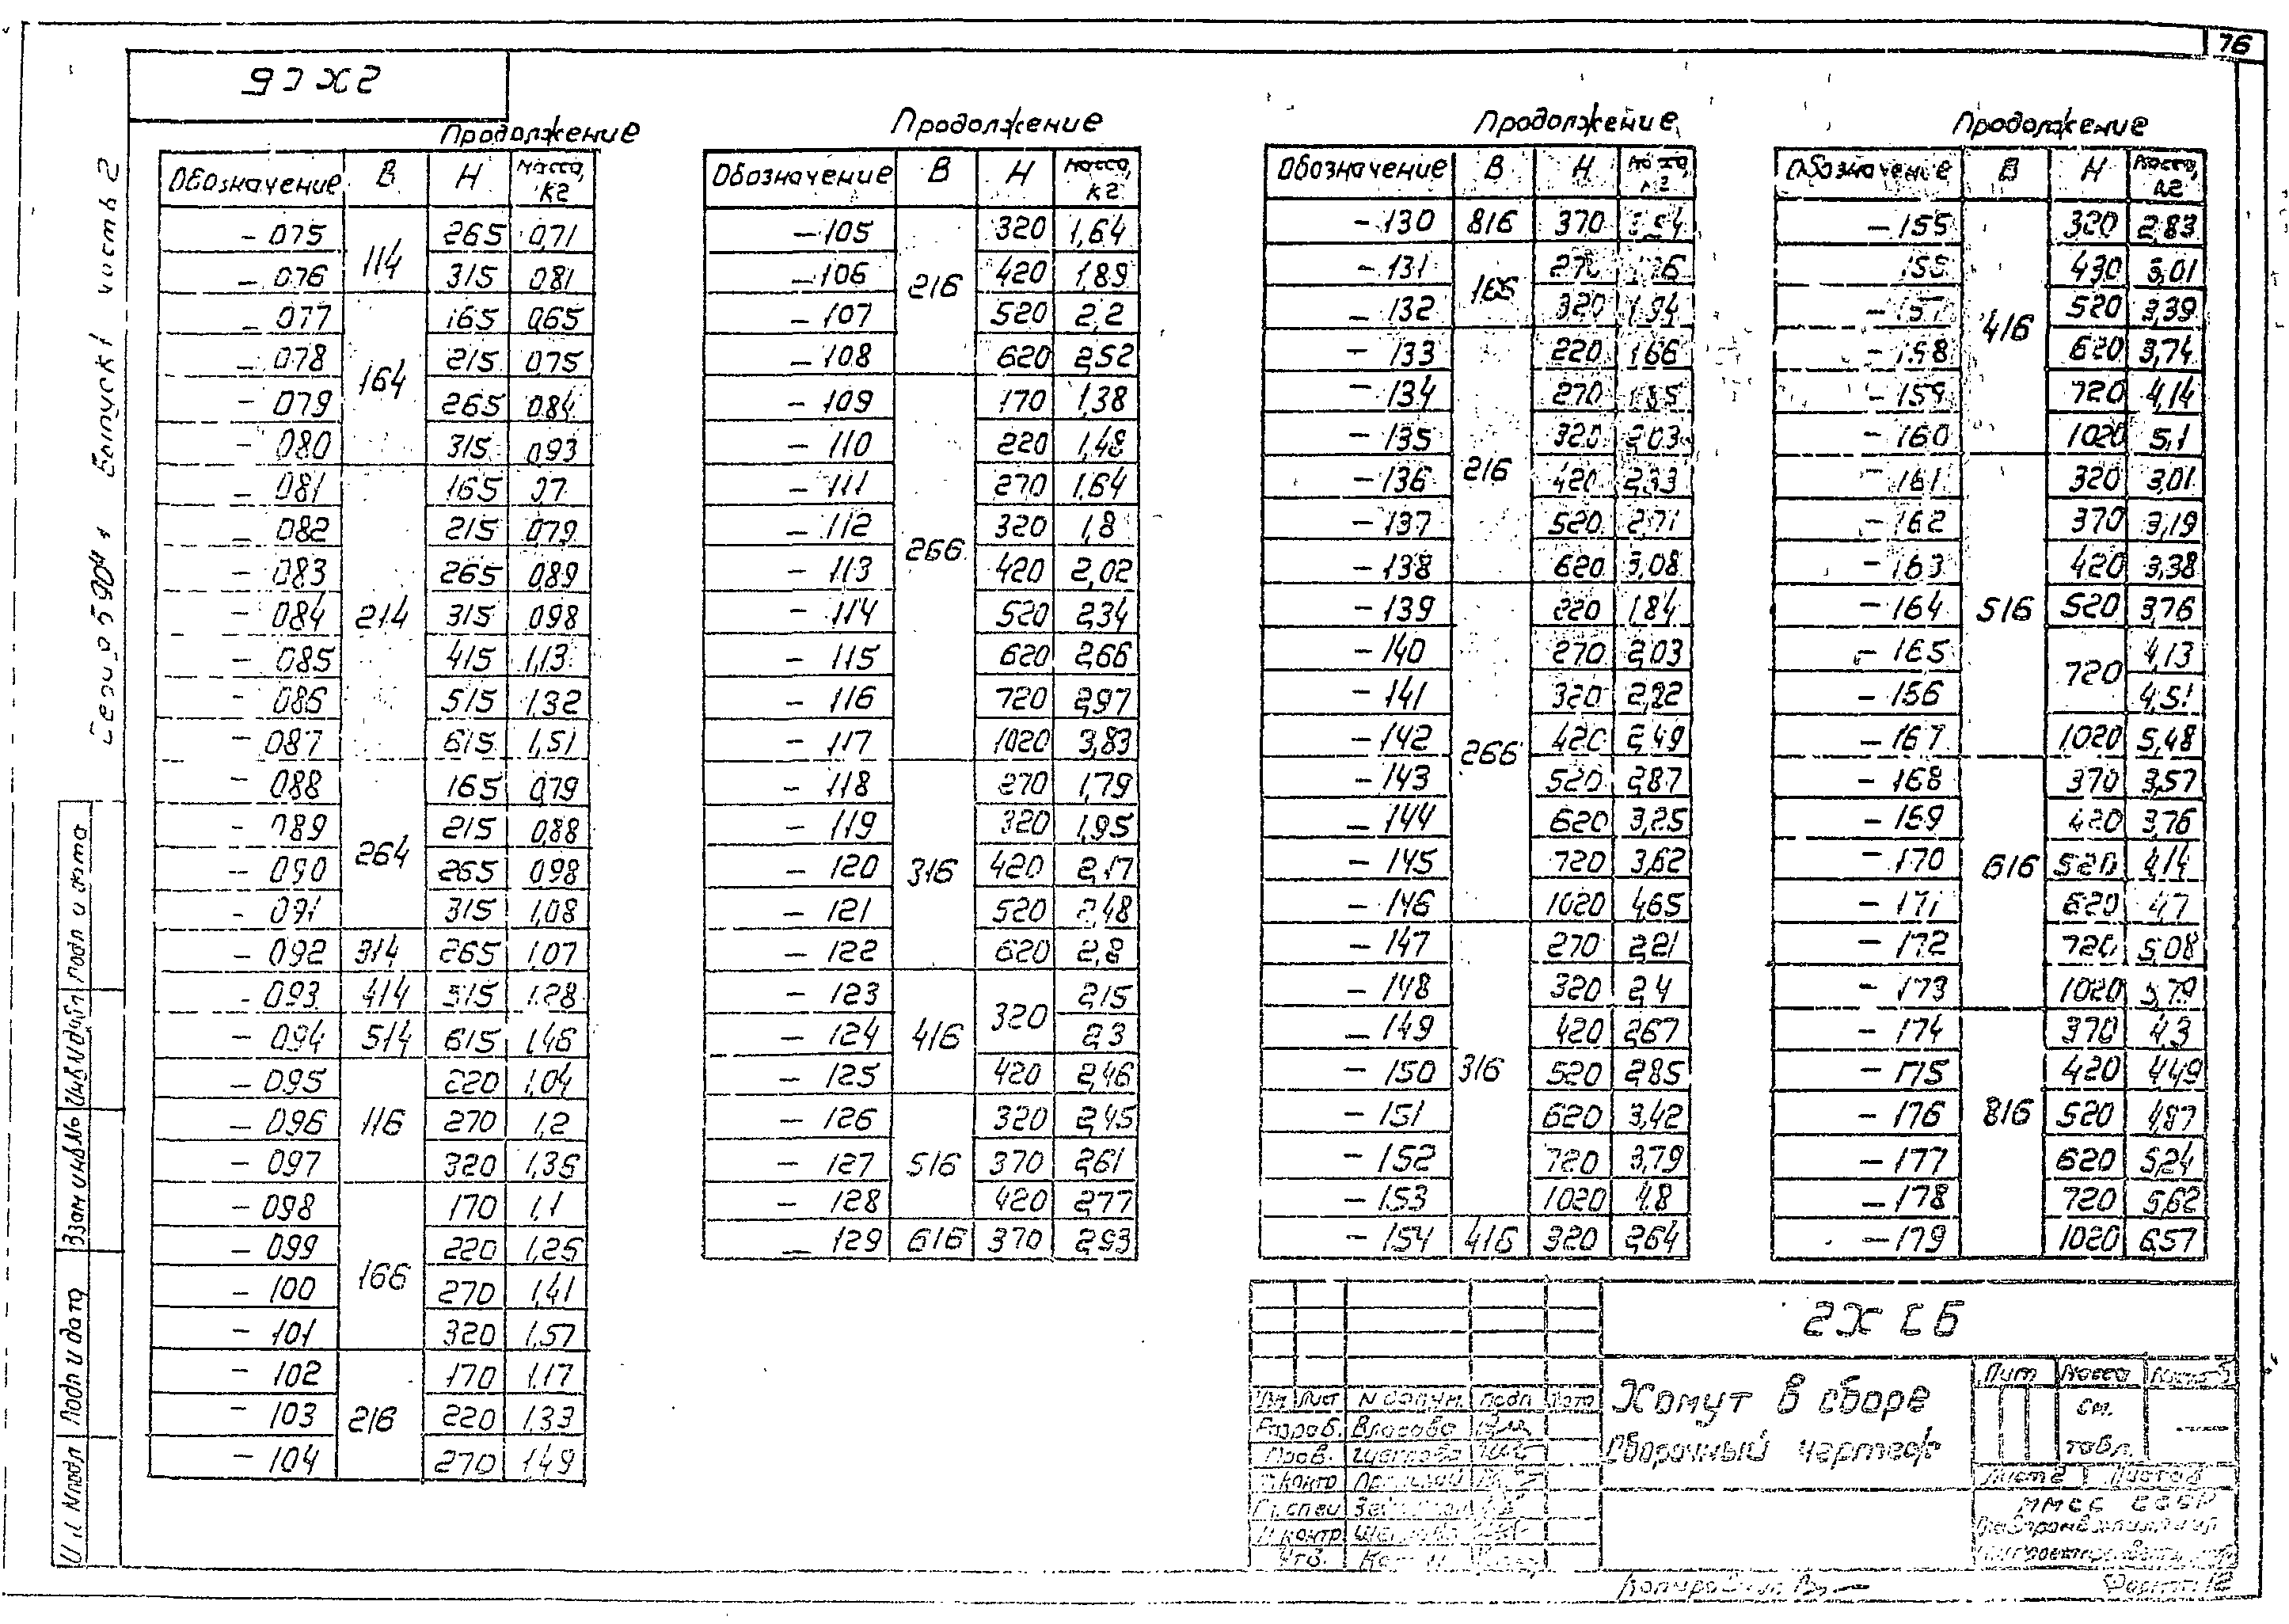 76
2Х СБ
Серия 5.904-1 Выпуск 1 часть 2
Продолжение
Обозначение В Н Масса, кг
- 075 114 265 0,71
- 076 315 0,81
- 077 164 165 0,65
- 078 215 0,75
- 079 265 0,84
- 080 315 0,93
- 081 214 165 0,7
- 082 215 0,79
- 083 265 0,89
- 084 315 0,98
- 085 415 1,13
- 086 515 1,32
- 087 615 1,51
- 088 264 165 0,79
- 089 215 0,88
- 090 265 0,98
- 091 315 1,08
- 092 314 265 1,07
- 093 414 315 1,28
- 094 514 615 1,46
- 095 116 220 1,04
- 096 270 1,2
- 097 320 1,36
- 098 166 170 1,1
- 099 220 1,25
- 100 270 1,41
- 101 320 1,57
- 102 216 170 1,17
- 103 220 1,33
- 104 270 1,49
Продолжение
Обозначение В Н Масса, кг
- 105 216 320 1,64
- 106 420 1,89
- 107 520 2,2
- 108 620 2,52
- 109 266 170 1,38
- 110 220 1,48
- 111 270 1,64
- 112 320 1,8
- 113 420 2,02
- 114 520 2,34
- 115 620 2,66
- 116 720 2,97
- 117 1020 3,83
- 118 316 270 1,79
- 119 320 1,95
- 120 420 2,17
- 121 520 2,48
- 122 620 2,8
- 123 416 320 2,15
- 124 2,3
- 125 420 2,46
- 126 516 320 2,45
- 127 370 2,61
- 128 420 2,77
- 129 616 370 2,93
Продолжение
Обозначение В Н Масса, кг
- 130 816 370
- 131 166 270
- 132 320 1,94
- 133 216 220 1,66
- 134 270 1,85
- 135 320 2,03
- 136 420 2,33
- 137 520 2,71
- 138 620 3,08
- 139 266 220 1,84
- 140 270 2,03
- 141 320 2,22
- 142 420 2,49
- 143 520 2,87
- 144 620 3,25
- 145 720 3,62
- 146 1020 4,65
- 147 316 270 2,21
- 148 320 2,4
- 149 420 2,67
- 150 520 2,85
- 151 620 3,42
- 152 720 3,79
- 153 1020 4,8
- 154 416 320 2,64
Продолжение
Обозначение В Н Масса, кг
- 155 416 320 2,83
156 430 3,01
- 157 520 3,39
- 158 620 3,74
- 159 720 4,14
- 160 1020 5,1
- 161 516 320 3,01
- 162 370 3,19
- 163 420 3,38
- 164 520 3,76
- 165 720 4,13
- 166 4,51
- 167 1020 5,48
- 168 616 370 3,57
- 169 420 3,76
- 170 520 4,14
- 171 620 4,7
- 172 720 5,08
- 173 1020 5,79
- 174 816 370 4,3
- 175 420 4,49
- 176 520 4,87
- 177 620 5,24
- 178 720 5,62
- 179 1020 6,57
2Х СБ
Хомут в сборе
Сборочный чертеж
Лит Масса
см.
табл.
Лист 2
ММСС СССР
Изм Лист N докум. Подп Дата
Разраб. Власова
Пров.
Гл. спец
Н контр
Утв.
Копировал
Формат 12
Подп и дата
Инв N дубл
Взам инв №
Подп и дата
Инв N подл